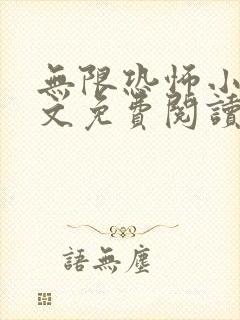 無限恐怖小
文免費閱讀
語無塵